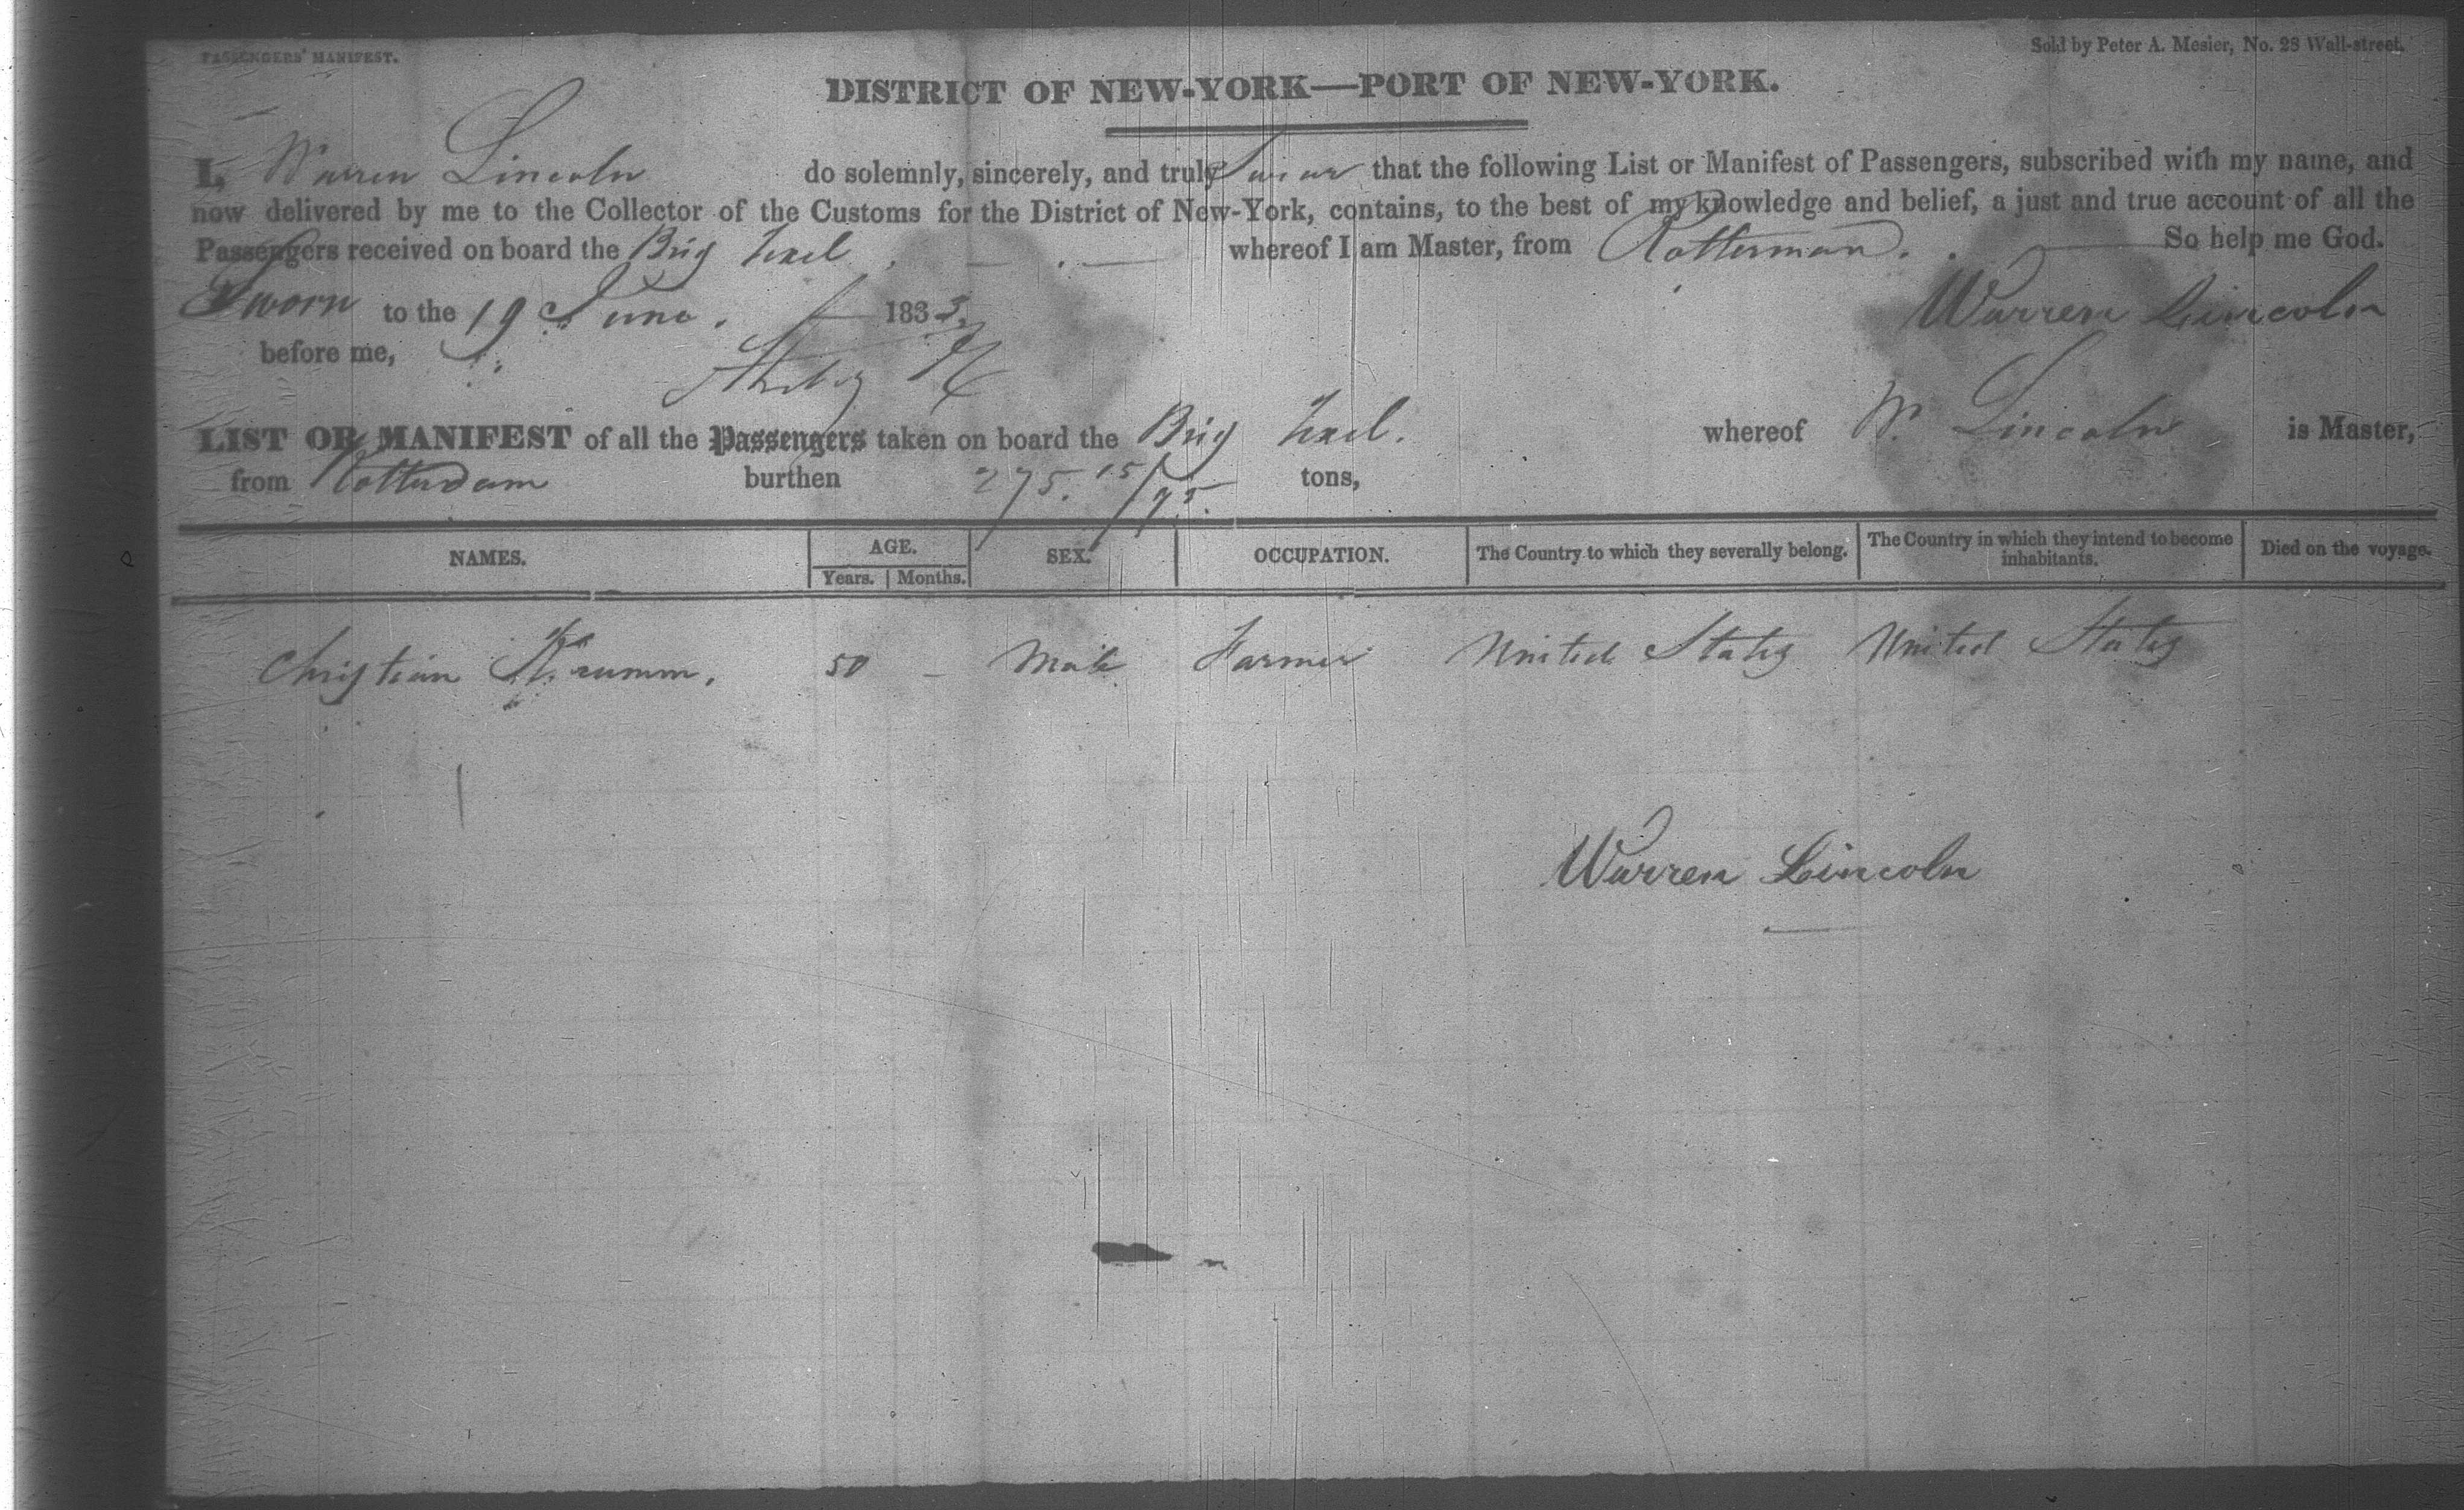 PASSENGERS' MANIFEST.
Sold by Peter A. Mesier, No. 28 Wall-street.
DISTRICT OF NEW-YORK—PORT OF NEW-YORK.
I, Warren Lincoln do solemnly, sincerely, and truly Swear that the following List or Manifest of Passengers, subscribed with my name, and
now delivered by me to the Collector of the Customs for the District of New-York, contains, to the best of my knowledge and belief, a just and true account of all the
Passengers received on board the Brig whereof I am Master, from Rotterman. So help me God.
Sworn to the 19 June. 1833. Warren Lincoln
before me,
LIST OR MANIFEST of all the Passengers taken on board the Brig whereof W. Lincoln is Master,
from Rotterdam burthen 275. 15/95. tons,
NAMES. AGE. Years. Months. SEX. OCCUPATION. The Country to which they severally belong. The Country in which they intend to become inhabitants. Died on the voyage.
Christian Krumm. 50 – Male Farmer United States United States
Warren Lincoln